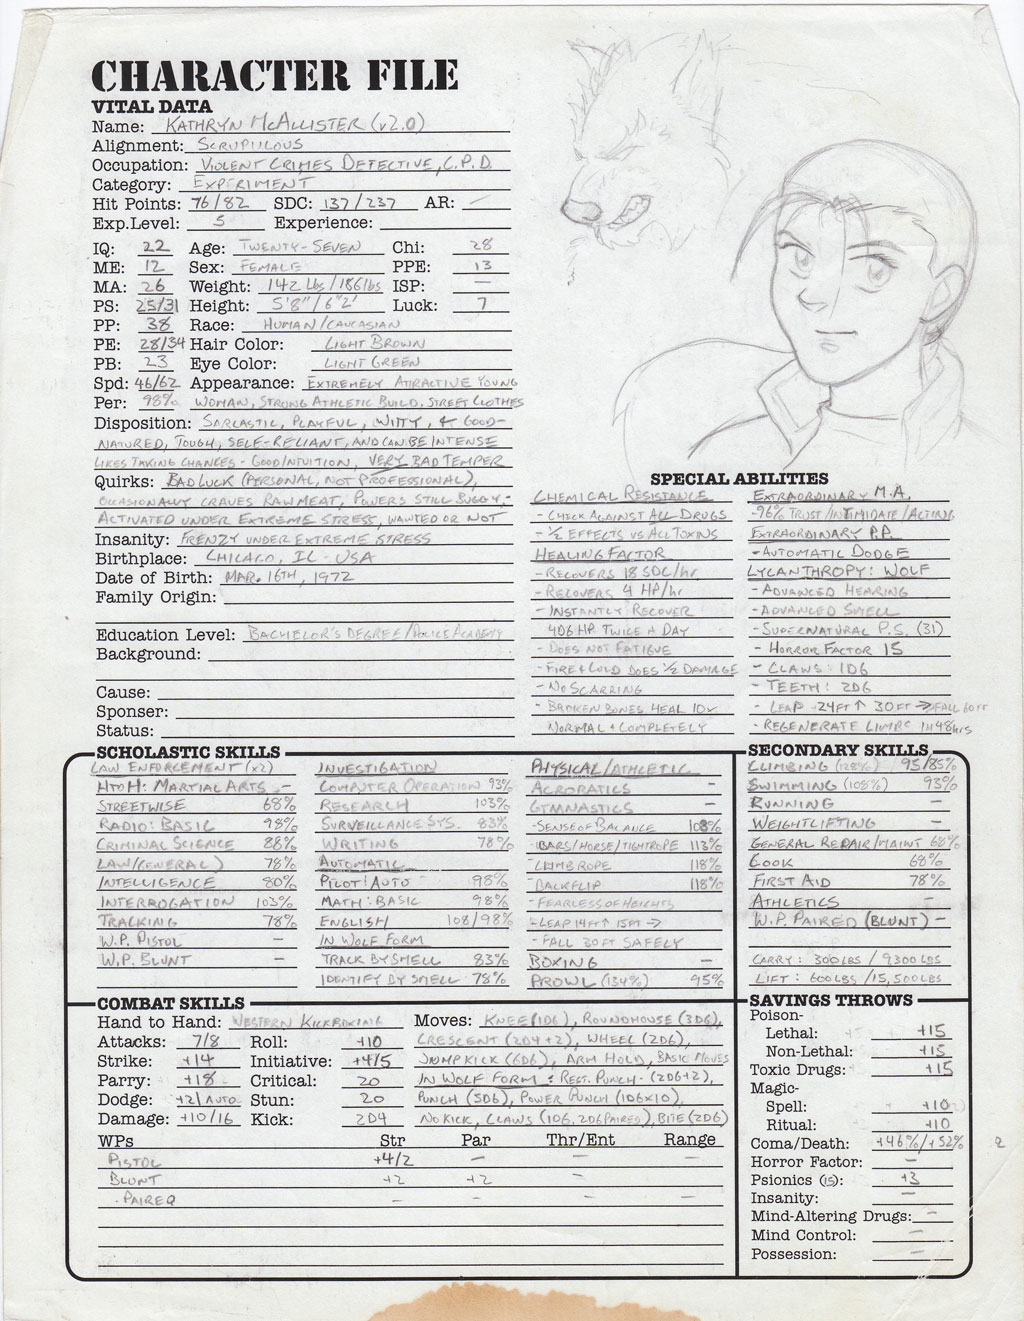 CHARACTER FILE
VITAL DATA
Name: KATHRYN McALLISTER (v2.0)
Alignment: SCRUPULOUS
Occupation: VIOLENT CRIMES DETECTIVE, C.P.D.
Category: EXPERIMENT
Hit Points: 76/82 SDC: 137/237 AR: -
Exp.Level: 5 Experience:
IQ: 22 Age: TWENTY-SEVEN Chi: 28
ME: 12 Sex: FEMALE PPE: 13
MA: 26 Weight: 142 lbs/186 lbs ISP: -
PS: 25/31 Height: 5'8"/6'2' Luck: 7
PP: 38 Race: HUMAN/CAUCASIAN
PE: 28/34 Hair Color: LIGHT BROWN
PB: 23 Eye Color: LIGHT GREEN
Spd: 46/62 Appearance: EXTREMELY ATTRACTIVE YOUNG
Per: 98% WOMAN, STRONG ATHLETIC BUILD, STREET CLOTHES
Disposition: SARCASTIC, PLAYFUL, WITTY, & GOOD-
NATURED, TOUGH, SELF-RELIANT, AND CAN BE INTENSE
LIKES TAKING CHANCES - GOOD INTUITION, VERY BAD TEMPER
Quirks: BAD LUCK (PERSONAL, NOT PROFESSIONAL),
OCCASIONALLY CRAVES RAW MEAT, POWERS STILL BUGGY,-
ACTIVATED UNDER EXTREME STRESS, WANTED OR NOT
Insanity: FRENZY UNDER EXTREME STRESS
Birthplace: CHICAGO, IL - USA
Date of Birth: MAR. 16TH, 1972
Family Origin:
Education Level: BACHELOR'S DEGREE/POLICE ACADEMY
Background:
Cause:
Sponser:
Status:
SPECIAL ABILITIES
CHEMICAL RESISTANCE
- CHECK AGAINST ALL DRUGS
- 1/2 EFFECTS VS ALL TOXINS
HEALING FACTOR
- RECOVERS 18 SDC/hr
- RECOVERS 4 HP/hr
- INSTANTLY RECOVER
4D6 HP TWICE A DAY
- DOES NOT FATIGUE
- FIRE & COLD DOES 1/2 DAMAGE
- NO SCARRING
- BROKEN BONES HEAL 10x
NORMAL + COMPLETELY
EXTRAORDINARY M.A.
- 96% TRUST/INTIMIDATE/ACTING
EXTRAORDINARY P.P.
- AUTOMATIC DODGE
LYCANTHROPY: WOLF
- ADVANCED HEARING
- ADVANCED SMELL
- SUPERNATURAL P.S. (31)
- HORROR FACTOR 15
- CLAWS: 1D6
- TEETH: 2D6
- LEAP 24FT↑ 30FT→ FALL 60FT
- REGENERATE LIMBS IN 48hrs
SCHOLASTIC SKILLS
LAW ENFORCEMENT (x2)
HTOH: MARTIAL ARTS -
STREETWISE 68%
RADIO: BASIC 98%
CRIMINAL SCIENCE 88%
LAW (GENERAL) 78%
INTELLIGENCE 80%
INTERROGATION 103%
TRACKING 78%
W.P. PISTOL -
W.P. BLUNT -
INVESTIGATION
COMPUTER OPERATION 93%
RESEARCH 103%
SURVEILLANCE SYS. 83%
WRITING 78%
AUTOMATIC
PILOT: AUTO 98%
MATH: BASIC 98%
ENGLISH 108/98%
IN WOLF FORM
TRACK BY SMELL 83%
IDENTIFY BY SMELL 78%
PHYSICAL/ATHLETIC
ACROBATICS -
GYMNASTICS -
- SENSE OF BALANCE 108%
- BARS/HORSE/TIGHTROPE 113%
- CLIMB ROPE 118%
- BACKFLIP 118%
- FEARLESS OF HEIGHTS
- LEAP 14FT↑ 15FT→
- FALL 30FT SAFELY
BOXING -
PROWL (134%) 95%
SECONDARY SKILLS
CLIMBING (128%) 95/85%
SWIMMING (108%) 93%
RUNNING -
WEIGHTLIFTING -
GENERAL REPAIR/MAINT 68%
COOK 68%
FIRST AID 78%
ATHLETICS -
W.P. PAIRED (BLUNT) -
CARRY: 300LBS/9300LBS
LIFT: 600LBS/15,500LBS
COMBAT SKILLS
Hand to Hand: WESTERN KICKBOXING
Attacks: 7/8 Roll: +10
Strike: +14 Initiative: +4/5
Parry: +18 Critical: 20
Dodge: +21/AUTO Stun: 20
Damage: +10/16 Kick: 2D4
Moves: KNEE (1D6), ROUNDHOUSE (3D6),
CRESCENT (2D4+2), WHEEL (2D6),
JUMPKICK (6D6), ARM HOLD, BASIC MOVES
IN WOLF FORM: REST. PUNCH - (2D6+2),
PUNCH (5D6), POWER PUNCH (1D6X10),
NO KICK, CLAWS (1D6, 2D6 PAIRED), BITE (2D6)
WPs Str Par Thr/Ent Range
PISTOL +4/2 - - -
BLUNT +2 +2 - -
- PAIRED - - - -
SAVINGS THROWS
Poison-
Lethal: +15
Non-Lethal: +15
Toxic Drugs: +15
Magic-
Spell: +10
Ritual: +10
Coma/Death: +46%/+52%
Horror Factor: -
Psionics (15): +3
Insanity: -
Mind-Altering Drugs: -
Mind Control: -
Possession: -